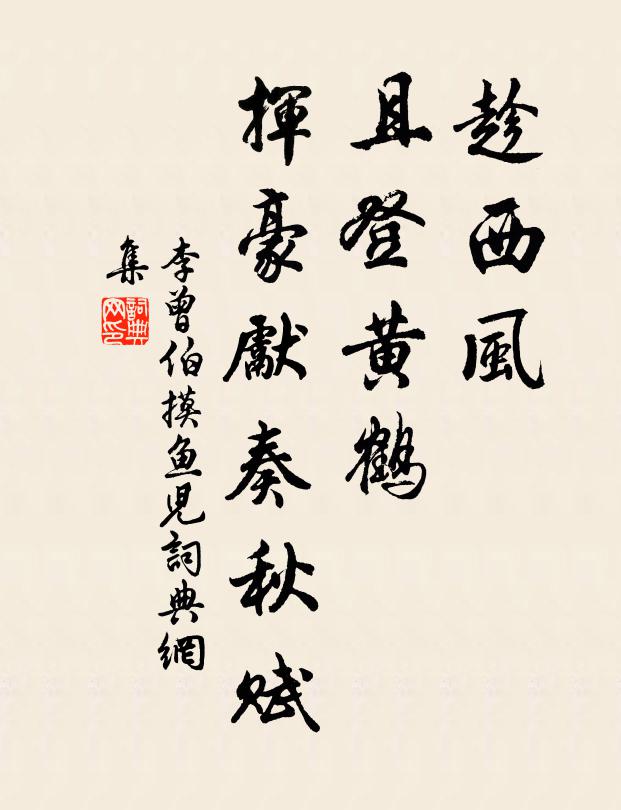 趁西風
且登黃鶴
揮豪獻奏秋賦
李曾伯摸魚児詞典網
集
詞典网印